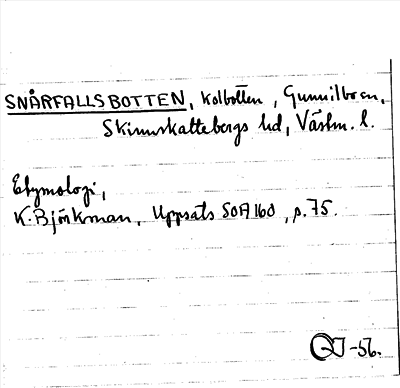 SNÅRFALLSBOTTEN, Kolbotten, Gunnilbo sn,
Skinnskattebergs hd, Västm. l.
Etymologi,
K. Björkman, Uppsats SOA 160, s. 75.
-56.